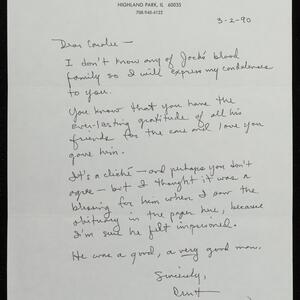 HIGHLAND PARK, IL 60035
708-940-4122
3-2-90
Dear Coralie —
I don't know any of Jack's blood
family so I will express my condolences
to you.
You know that you have the
ever-lasting gratitude of all his
friends for the care and love you
gave him.
It's a cliché — and perhaps you don't
agree — but I thought it was a
blessing for him when I saw the
obituary in the paper here, because
I'm sure he felt imprisoned.
He was a good, a very good man.
Sincerely,